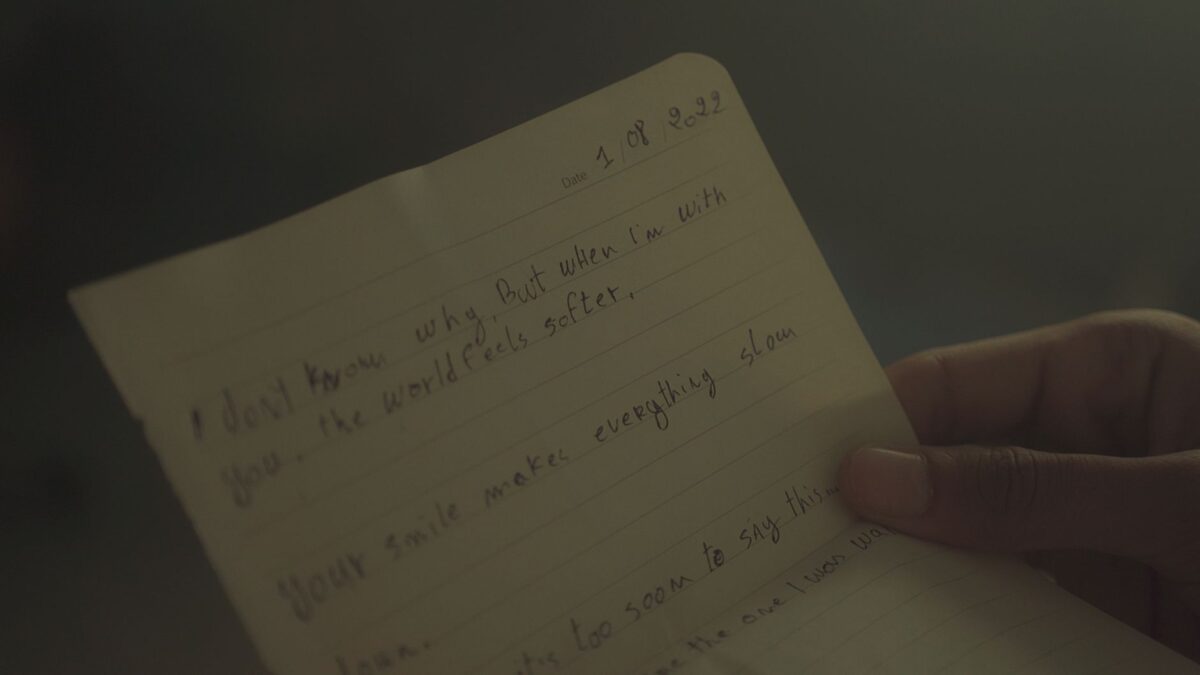 Date 1/08/2022
I don't know why, But when I'm with
you. the world feels softer.
Your smile makes everything slow
down.
it's too soon to say this...
the one I was